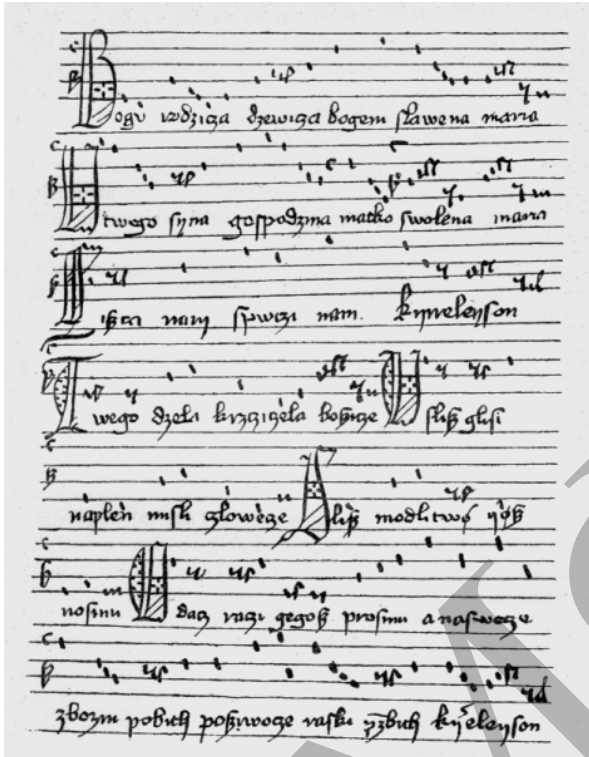 Bogu rodzicza dzewicza bogem slawena maria
U twego syna gospodzina matko swolena maria
nam spwczi nam. Kyrieleyson
Twego dzela krzcziczela bozicze Uslisz glosi
naplen misli czlowecze Slisz modlitwo yosz
nosimi dacz raczi gegosz prosimi a naswecze
zbozni pobith posziwocze raski kyrieleyson